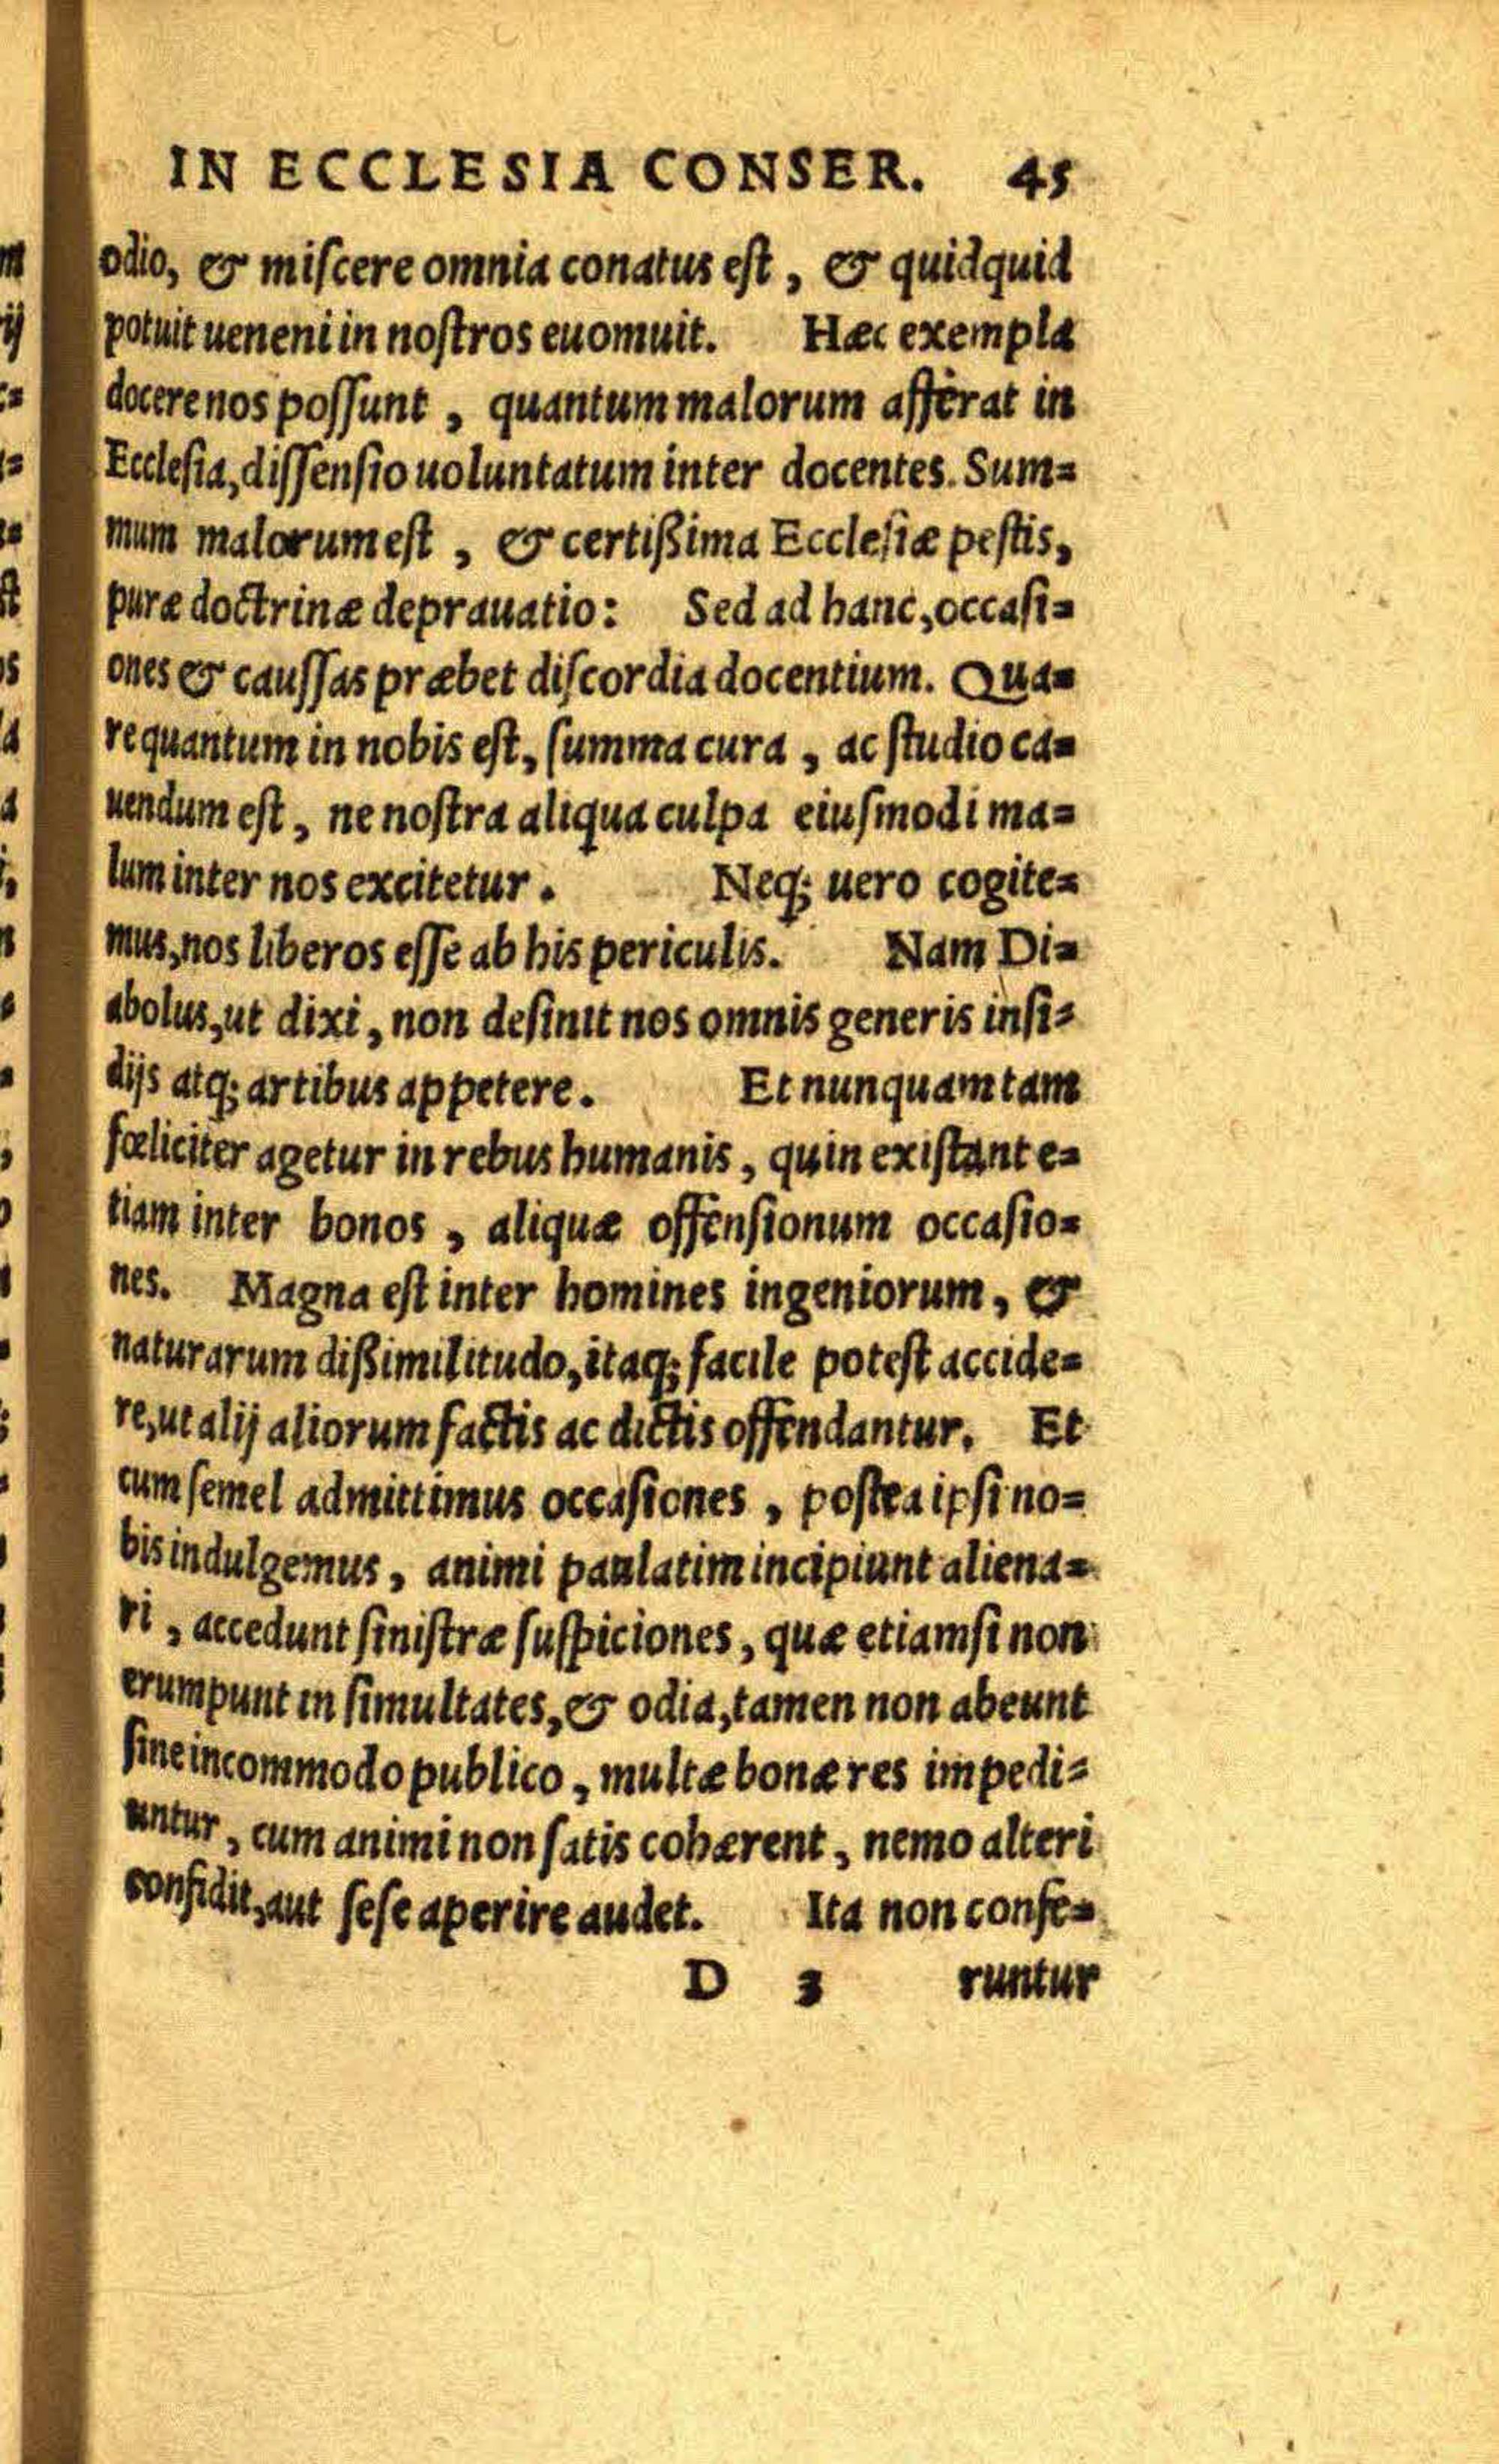 IN ECCLESIA CONSER. 45
odio, & miſcere omnia conatus eſt, & quidquid
potuit ueneni in noſtros euomuit. Hæc exempla
docere nos poſſunt, quantum malorum afferat in
Eccleſia, diſſenſio uoluntatum inter docentes. Sum=
mum malorum eſt, & certißima Eccleſiæ peſtis,
puræ doctrinæ deprauatio: Sed ad hanc, occaſi=
ones & cauſſas præbet diſcordia docentium. Qua=
re quantum in nobis eſt, ſumma cura, ac ſtudio ca=
uendum eſt, ne noſtra aliqua culpa eiuſmodi ma=
lum inter nos excitetur. Neq; uero cogite=
mus, nos liberos eſſe ab his periculis. Nam Di=
abolus, ut dixi, non deſinit nos omnis generis inſi=
dijs atq; artibus appetere. Et nunquam tam
fœliciter agetur in rebus humanis, quin exiſtant e=
tiam inter bonos, aliquæ offenſionum occaſio=
nes. Magna eſt inter homines ingeniorum, &
naturarum dißimilitudo, itaq; facile poteſt accide=
re, ut alij aliorum factis ac dictis offendantur. Et
cum ſemel admittimus occaſiones, poſtea ipſi no=
bis indulgemus, animi paulatim incipiunt aliena=
ri, accedunt ſiniſtræ ſuſpiciones, quæ etiamſi non
erumpunt in ſimultates, & odia, tamen non abeunt
ſine incommodo publico, multæ bonæ res impedi=
untur, cum animi non ſatis cohærent, nemo alteri
confidit, aut ſeſe aperire audet. Ita non confe=
D 3 runtur